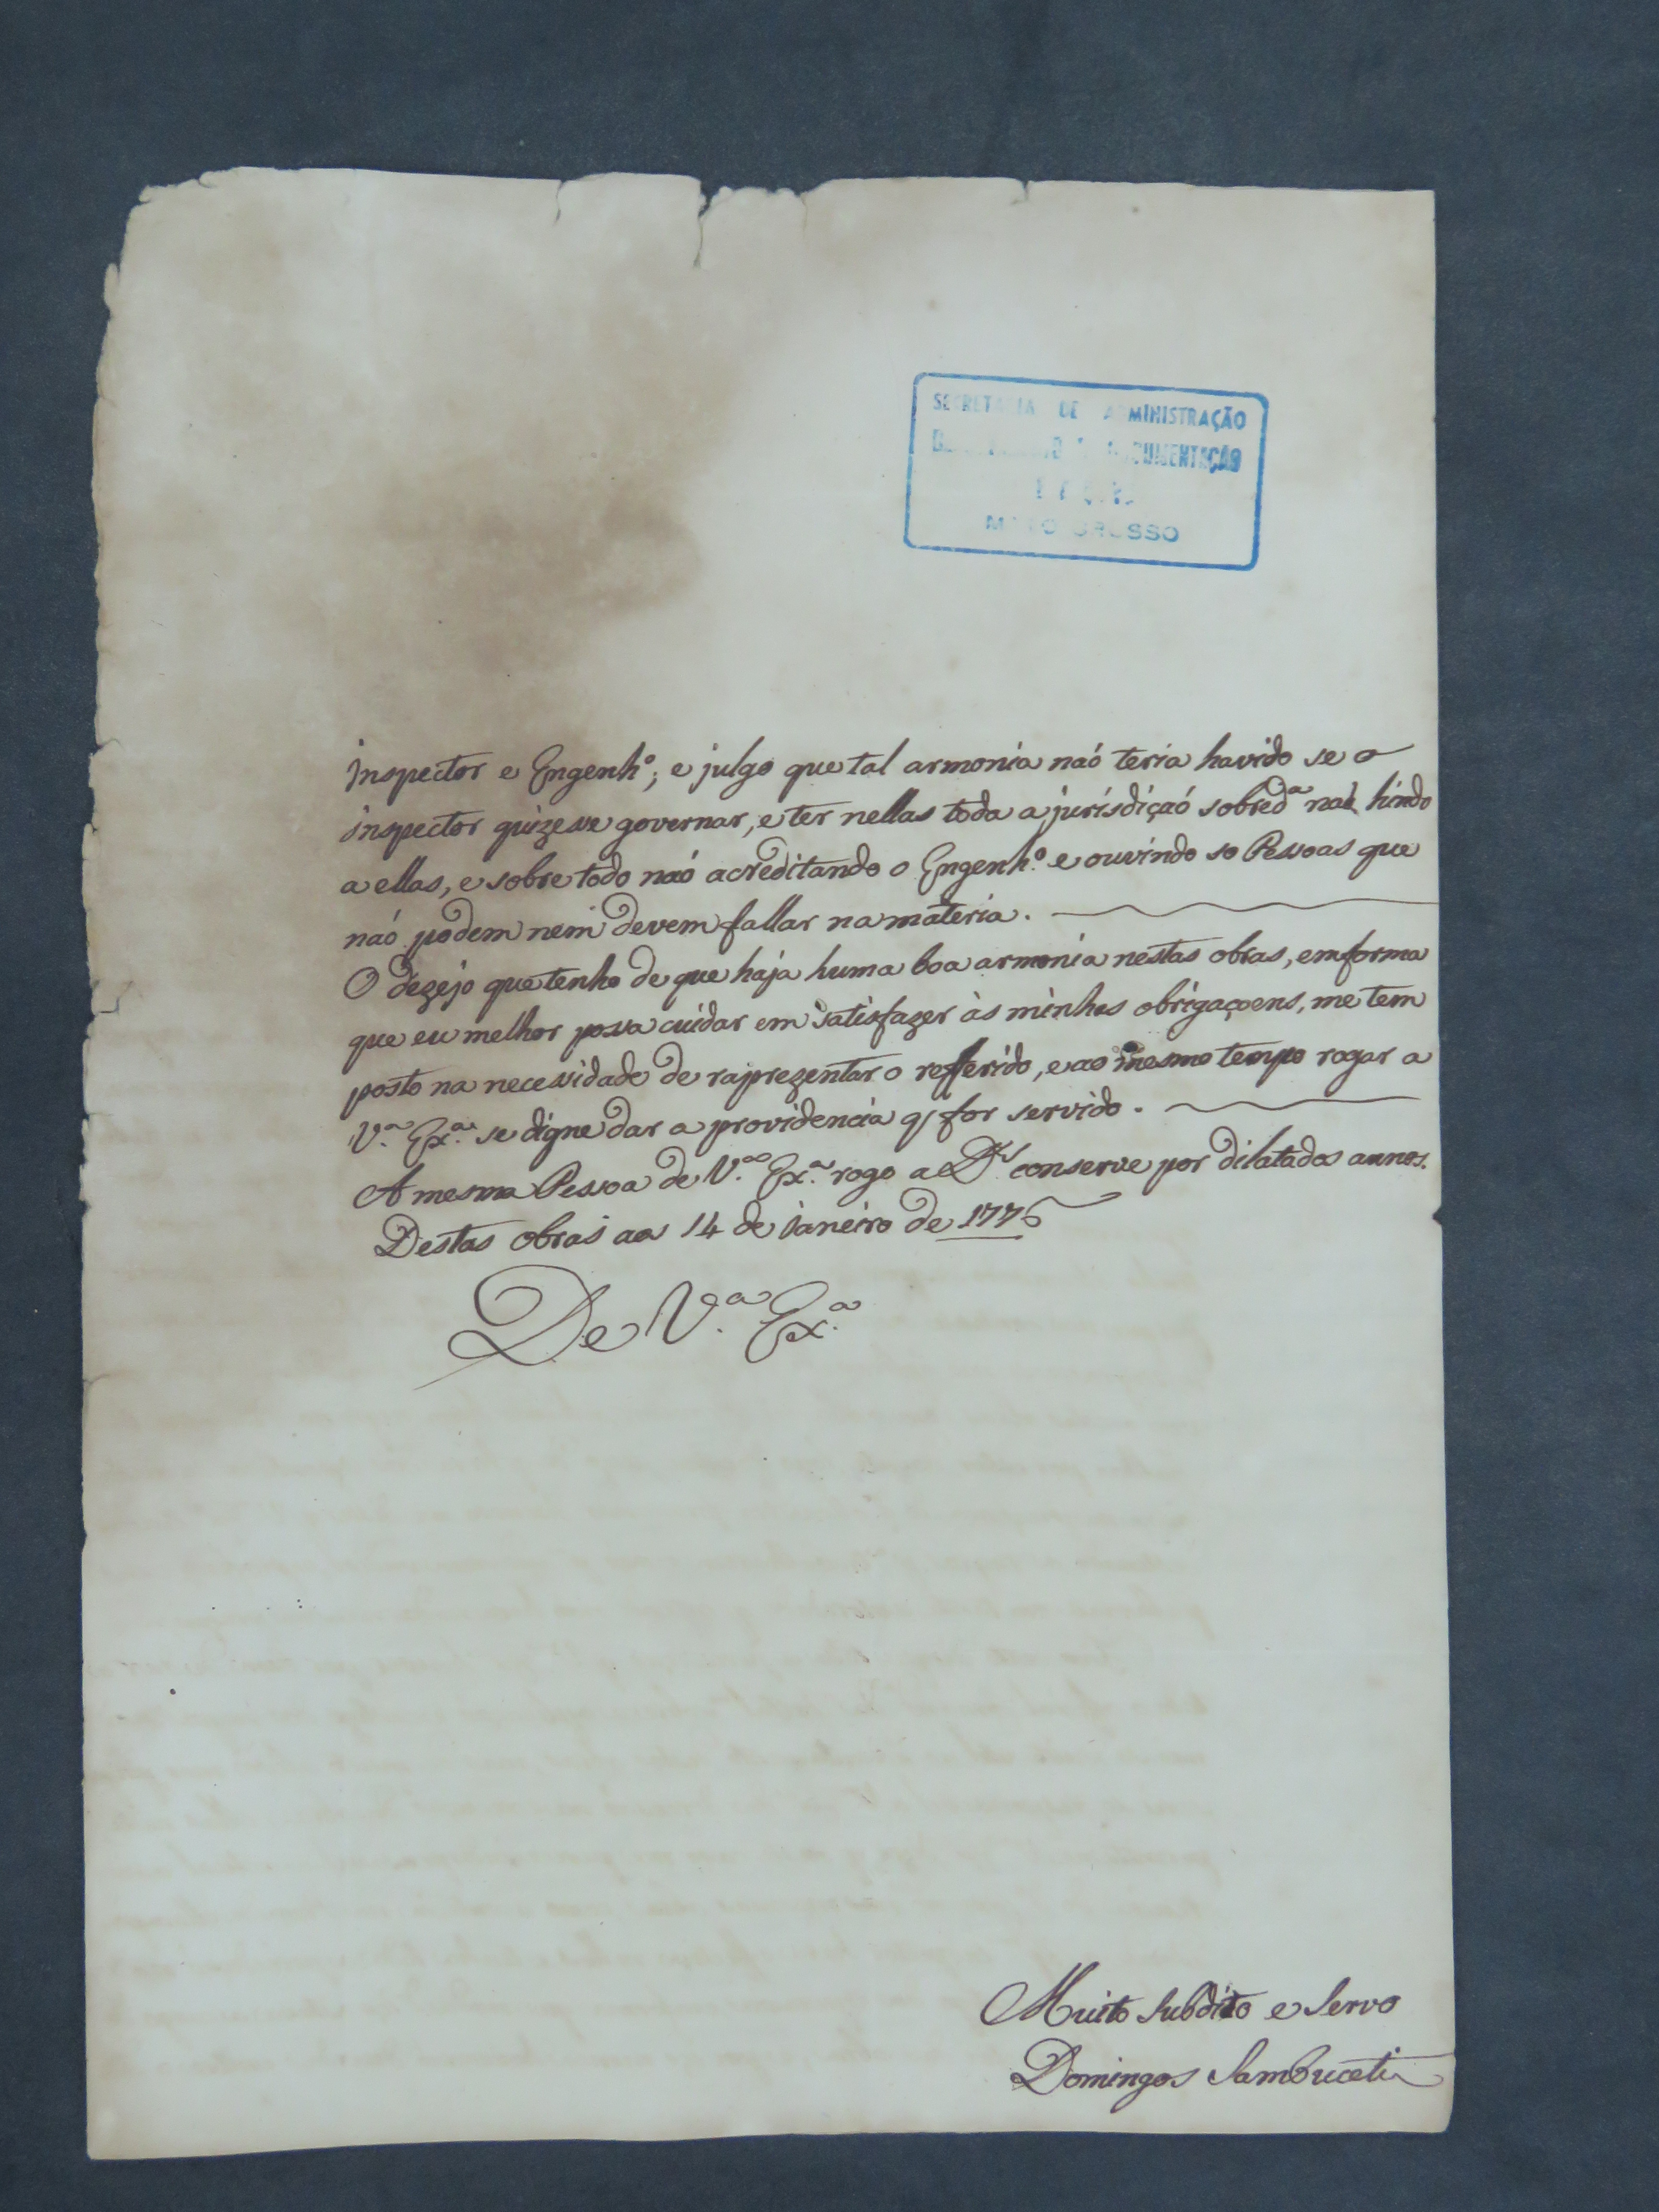 SECRETARIA DE ADMINISTRAÇÃO
DOCUMENTAÇÃO
MATO GROSSO
Inspector e Engenh.º; e julgo que tal armonia naó teria havido se o
inspector quizesse governar, e ter nellas toda a jurisdiçaó sobred.ª naó hindo
a ellas, e sobre todo naó acreditando o Engenh.º e ouvindo so Pessoas que
naó podem nem devem fallar na materia.
O dezejo que tenho de que haja huma boa armonia nestas obras, em forma
que eu melhor possa cuidar em satisfazer às minhas obrigaçoens, me tem
posto na necessidade de raprezentar o refferido, e ao mesmo tempo rogar a
V.ª Ex.ª se digne dar a providencia q̃ for servido.
A mesma Pessoa de V.ª Ex.ª rogo a D.s conserve por dilatados annos.
Destas obras aos 14 de janeiro de 1776
De V.ª Ex.ª
Muito Subdito e Servo
Domingos Sambuceti